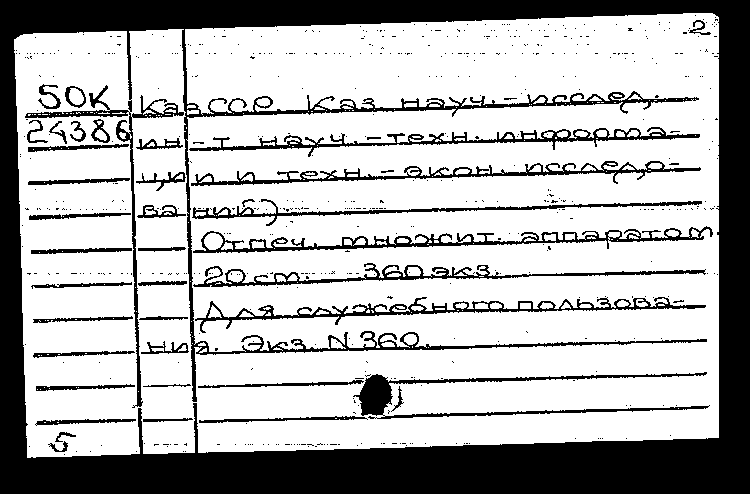 2
50К КазССР. Каз. науч.-исслед.
24386 ин-т науч.-техн. информа-
ции и техн.-экон. исследо-
ваний)
Отпеч. множит. аппаратом.
20 см. 360 экз.
Для служебного пользова-
ния. Экз. N 360.
5